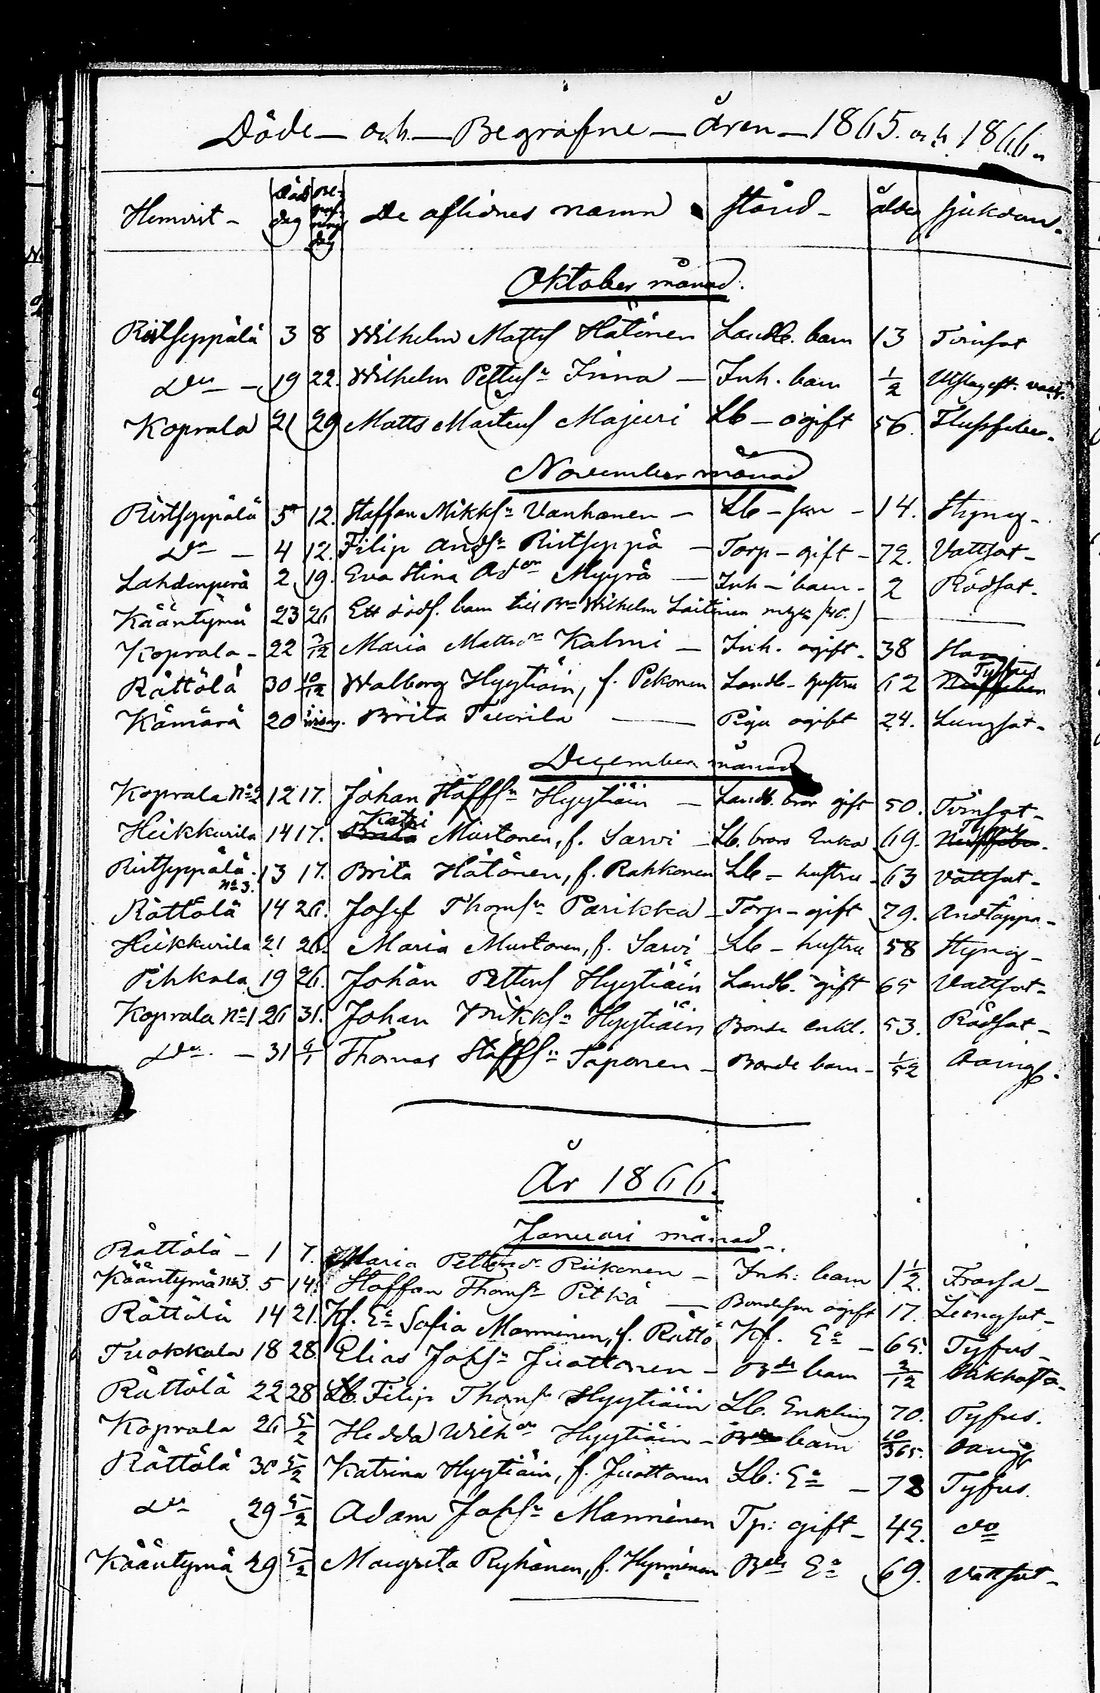 Döde — och — Begrafne — åren — 1865. och 1866.
Hemvist — Döds dag Begrafnings dag De aflidnes namn Stånd — ålder sjukdom.
Oktober månad.
Ristseppälä 3 8 Wilhelm Mattss Hätönen Landb. barn 13 Tvinsot
Do — 19 22. Wilhelm Petterssn Inna — Inh. barn 1/2
Koprala 21 29 Matts Mårtenss Majuri Lb — ogift 56.
November månad
Ristseppälä 5 12. Staffan Mikkssn Vanhanen — Lb — son — 14. Styng —
Do — 4 12. Filip Andssn Ristseppä — Torp — gift — 72. Vattsot —
Lahdenperä 2 19. Eva Stina Ador Myyrä — Inh — barn — 2 Rödsot —
Kääntymä 23 26 Ett dödf. barn till Bn Wilhelm Laitinen
Koprala — 22 3/12 Maria Mattsdr Kalmi — Inh. ogift — 38
Rättölä 30 10/12 Walborg Hyytiäin, f. Pekonen Landb — hustru 62 Tyfus
Kämärä 20 Brita Tuurila — Piga ogift 24. Lungsot —
December månad
Koprala No2 12 17. Johan Staffssn Hyytiäin — Landb. bror gift 50. Tvinsot —
Heikkurila 14 17. Katri Mustonen, f. Sarvi — Lb. brors Enka 69.
Ristseppälä No3. 13 17. Brita Hätönen, f. Rahkonen Lb — hustru — 63 Vattsot —
Rättölä 14 26. Josef Thomssn Parikka — Torp — gift 79. Andtäppa —
Heikkurila 21 26. Maria Mustonen, f. Sarvi — Lb — hustru 58 Styng —
Pihkala 19 26. Johan Petterss Hyytiäin Landb. gift 65 Vattsot —
Koprala No1 26 31. Johan Mikkssn Hyytiäin Bonde enkl. 53. Rödsot —
Do — 31 6/1 Thomas Staffssn Taponen — Bonde barn — 1/52
År 1866.
Januari månad.
Rättölä — 1 7. Maria Pettersdr Riikonen — Inh: barn 1 1/2. Frossa —
Kääntymä No3. 5 14. Staffan Thomssn Pitkä — Bondeson ogift 17. Lungsot —
Rättölä 14 21. Kf. Ea Sofia Manninen, f. Rättö Kf. Ea — 65. Tyfus —
Tuokkola 18 28. Elias Jakssn Juottonen — Bds barn 2/12 Kikhosta —
Rättölä 22 28 Lb. Filip Thomssn Hyytiäin Lb. Enkling 70. Tyfus.
Koprala 26 5/2 Hedda Wilhdr Hyytiäin — barn 10/365.
Rättölä 30 5/2 Katrina Hyytiäin, f. Juottonen Lb: Ea — 78 Tyfus.
Do 29 5/2 Adam Jakssn Manninen Tp: gift — 49. do
Kääntymä 29 5/2 Margreta Ryhänen, f. Hynninen Bds Ea 69. Vattsot —